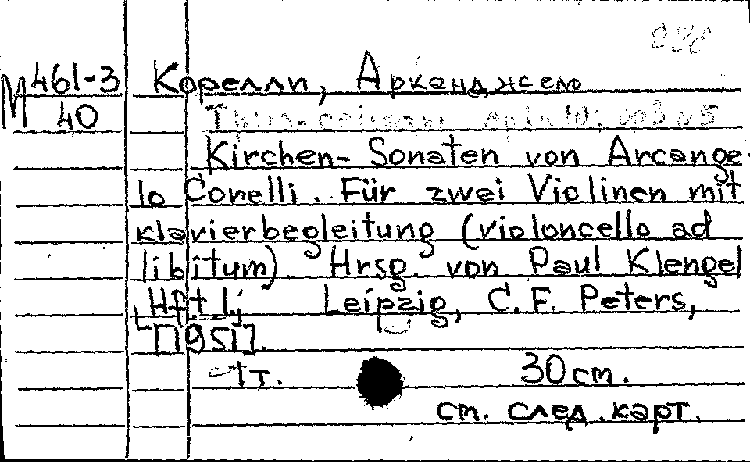 М 461-3 Корелли, Арканджело
40
Kirchen-Sonaten von Arcange-
lo Corelli. Für zwei Violinen mit
klavierbegleitung (violoncello ad
libitum) Hrsg. von Paul Klengel
Hft I, Leipzig, C. F. Peters,
[1951].
1 т. 30 cm.
см. след. карт.